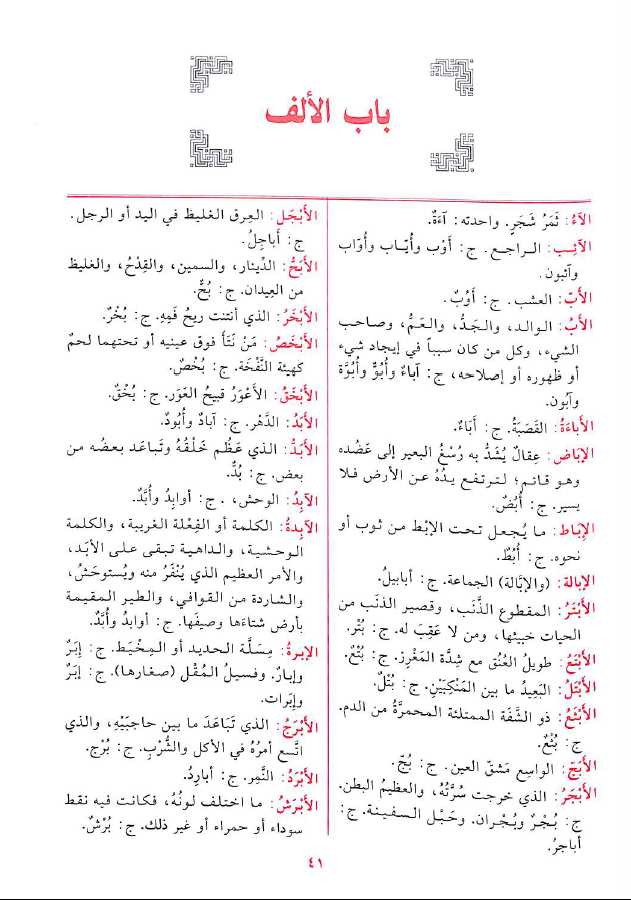 باب الألف
الآءُ: ثَمَرُ شَجَرٍ. واحدته: آءَةٌ.
الآئِب: الراجع. ج: أَوْب وأُيَّاب وأُوَّاب
وآئبون.
الأَبّ: العشب. ج: أَوُبٌ.
الأَبُ: الوالد، والجَدُّ، والعَمُّ، وصاحب
الشيء، وكل من كان سبباً في إيجاد شيء
أو ظهوره أو إصلاحه، ج: آباءٌ وأُبُوٌّ وأُبُوَّة
وآبُون.
الأَباءَةُ: القَصَبَةُ. ج: أَبَاءٌ.
الإِبَاض: عِقالٌ يُشَدُّ به رُسْغُ البعير إلى عَضُده
وهو قائم؛ لترتفع يدُهُ عن الأرض فلا
يسير. ج: أُبُضٌ.
الإِبَاط: ما يُجعل تحت الإِبْط من ثوب أو
نحوه. ج: أُبُطٌ.
الإِبالة: (والإبَّالة) الجماعة. ج: أبابيلُ.
الأَبْتَرُ: المقطوع الذَّنَب، وقصير الذنَب من
الحيات خبيثها، ومن لا عَقِبَ له. ج: بُتْر.
الأَبْتَعُ: طويلُ العُنُق مع شِدَّة المَغْرِز. ج: بُتْعٌ.
الأَبْتَلُ: البَعِيدُ ما بين المَنْكِبَيْنِ. ج: بُتْلٌ.
الأَبْثَعُ: ذو الشَّفَة الممتلئة المحمرَّة من الدم.
ج: بُثْعٌ.
الأَبَجّ: الواسع مَشَق العين. ج: بُجّ.
الأَبْجَرُ: الذي خرجت سُرَّتُهُ، والعظيم البطن.
ج: بُجْرٌ وبُجْران. وحَبْل السفينة. ج:
أباجرُ.
الأَبْجَل: العِرق الغليظ في اليد أو الرجل.
ج: أَباجِلُ.
الأَبَحُّ: الدِّينار، والسمين، والقِدْحُ، والغليظ
من العِيدان. ج: بُحٌّ.
الأَبْخَرُ: الذي أنتنت ريحُ فَمِهِ. ج: بُخْرٌ.
الأَبْخَصُ: مَنْ نَتَأَ فوق عينيه أو تحتهما لحمٌ
كهيئة النَّفْخَة. ج: بُخْصٌ.
الأَبْخَقُ: الأَعْوَرُ قبيحُ العَوَر. ج: بُخْقٌ.
الأَبَدُ: الدَّهْر. ج: آبادٌ وأُبُودٌ.
الأَبَدُّ: الذي عَظُم خَلْقُهُ وتَباعَد بعضُه من
بعض. ج: بُدٌّ.
الآبِدُ: الوحش، . ج: أوابِدُ وأُبَّدٌ.
الآبِدةُ: الكلمة أو الفِعْلة الغريبة، والكلمة
الوحشية، والداهية تبقى على الأَبَد،
والأمر العظيم الذي يُنْفَرُ منه ويُستوحَشُ،
والشاردة من القوافي، والطير المقيمة
بأرض شتاءَها وصيفَها. ج: أوابدُ وأُبَّدٌ.
الإِبرةُ: مِسَلَّة الحديد أو المِخْيَط. ج: إِبَرٌ
وإبارٌ. وفسيلُ المُقْل (صغارها). ج: إِبَرٌ
وإِبَرات.
الأَبْرَجُ: الذي تَبَاعَدَ ما بين حاجبَيْهِ، والذي
اتَّسع أمرُهُ في الأكل والشُّرْبِ. ج: بُرْج.
الأَبْرَدُ: النَّمِر. ج: أبارِدُ.
الأَبْرَشُ: ما اختلف لونُهُ، فكانت فيه نقط
سوداء أو حمراء أو غير ذلك. ج: بُرْشٌ.
٤١